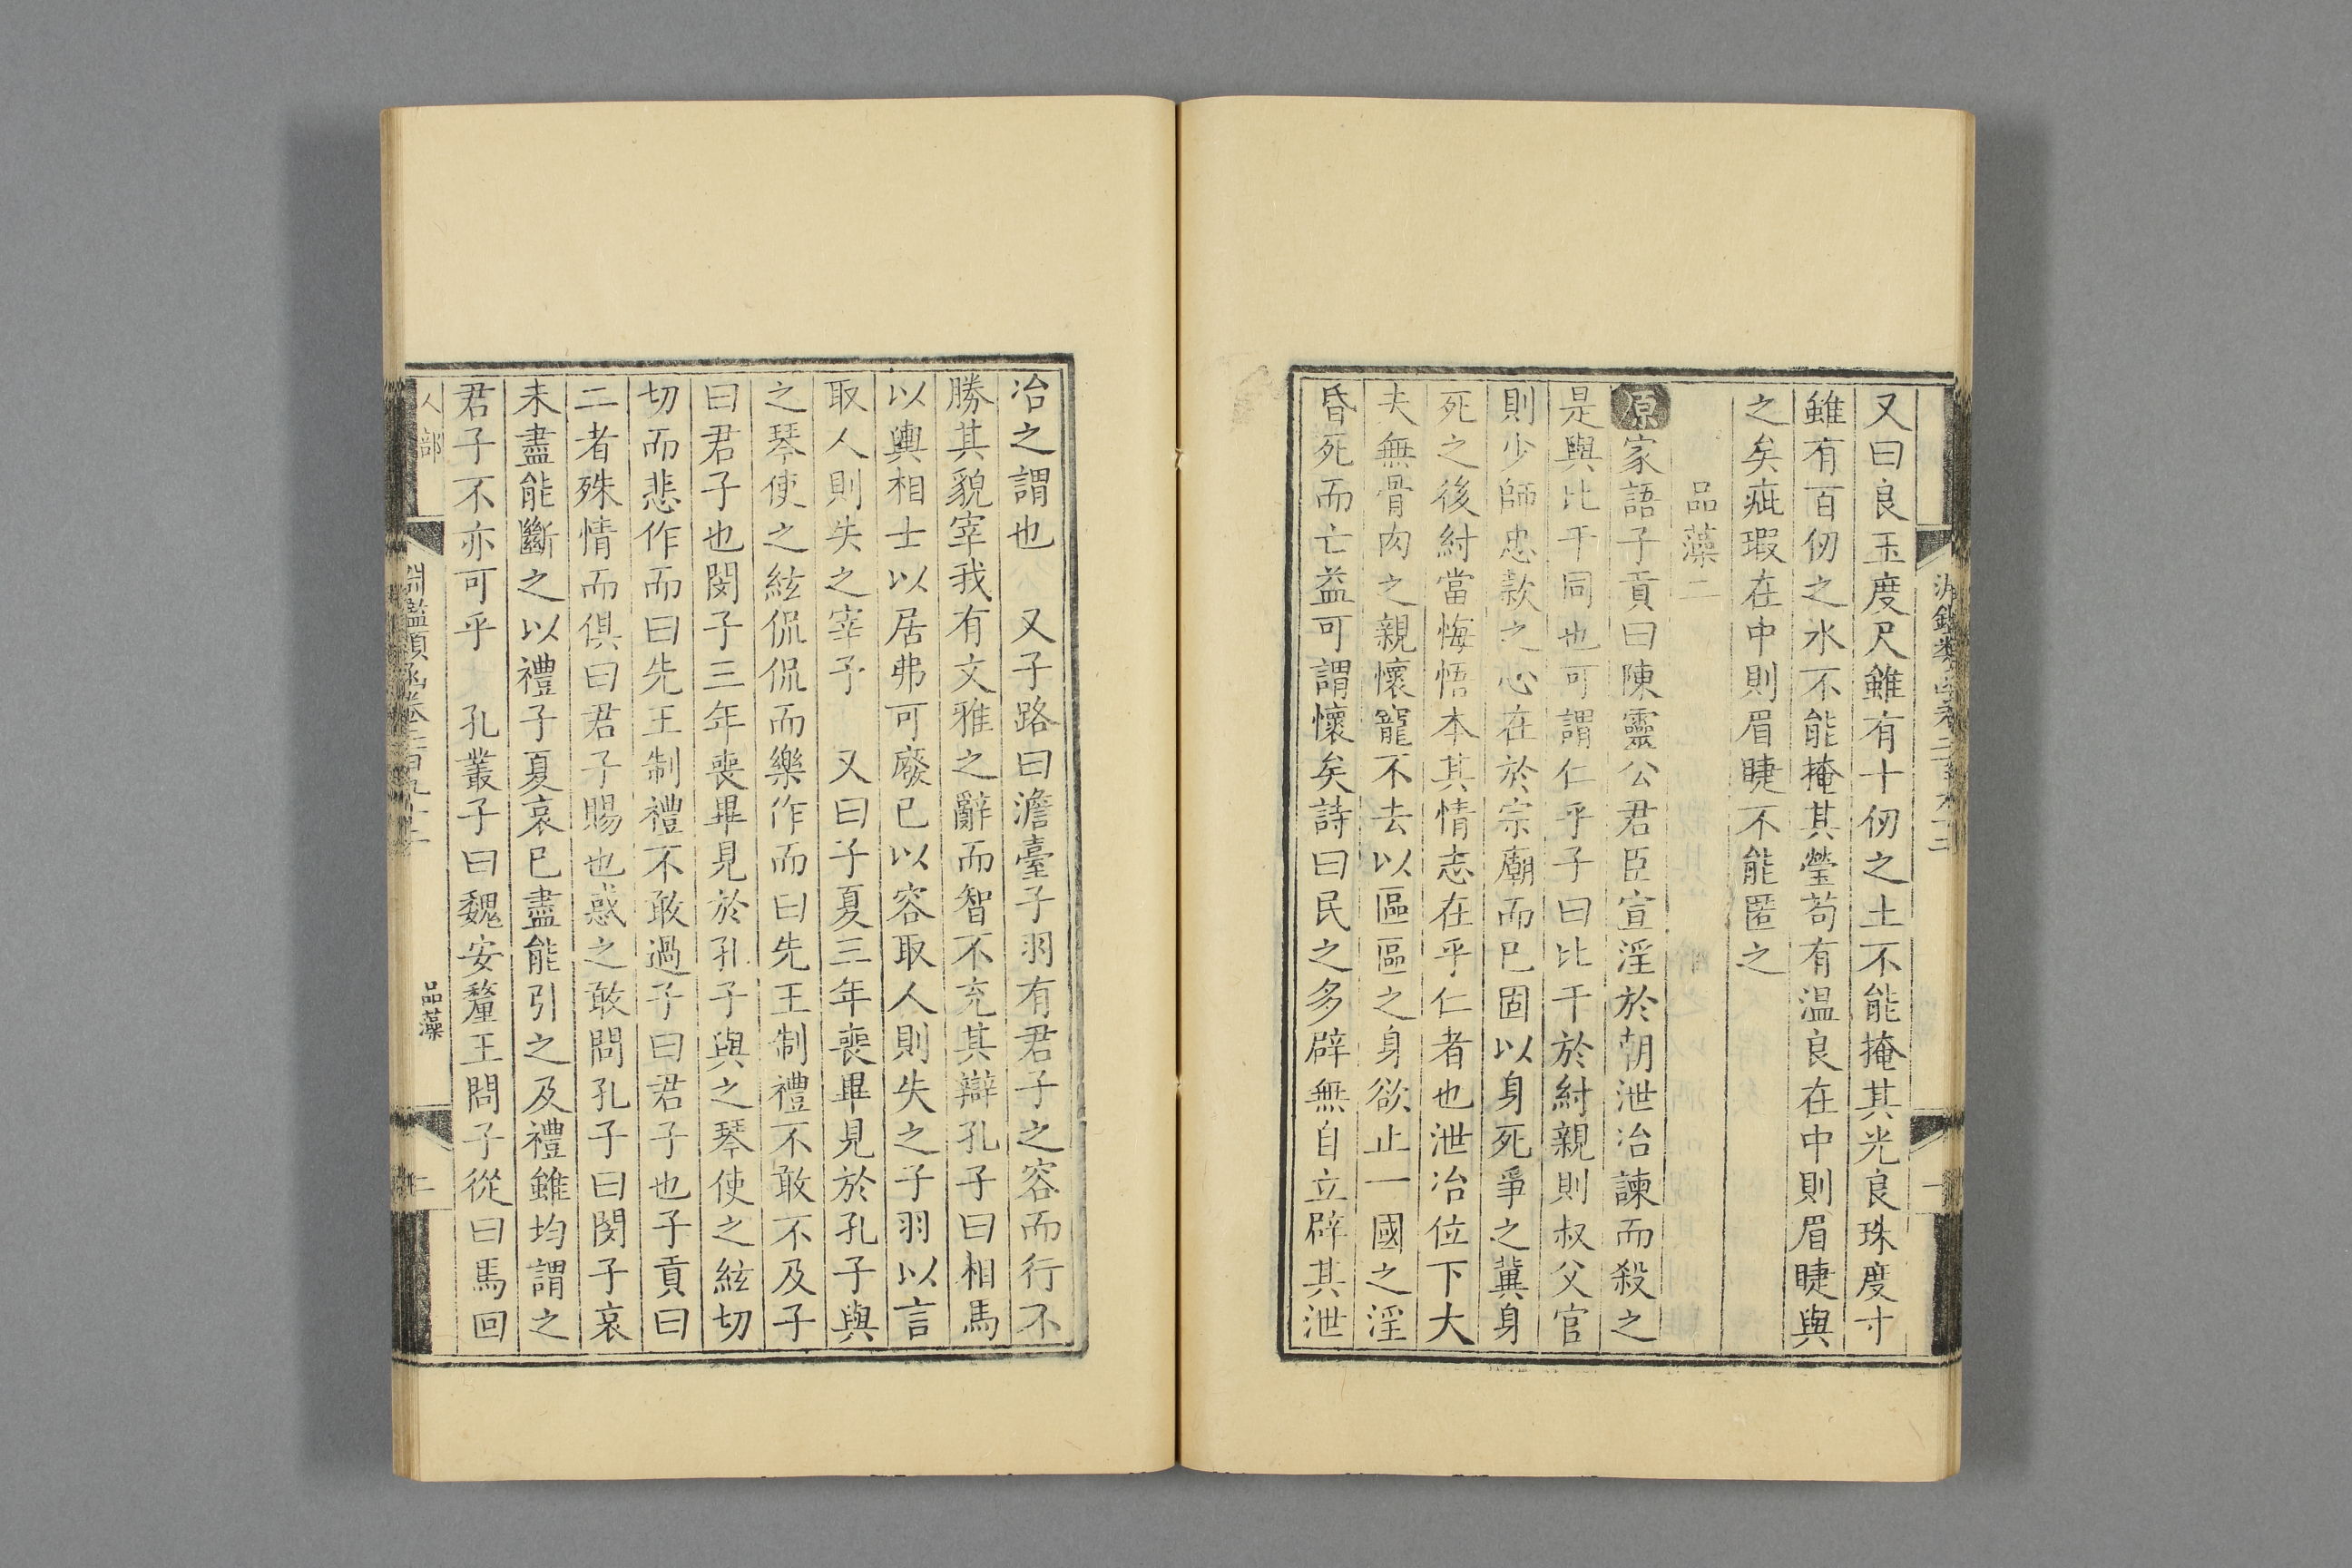 又曰良玉度尺雖有十仞之土不能掩其光良珠度寸
雖有百仞之水不能掩其瑩苟有温良在中則眉睫與
之矣疵瑕在中則眉睫不能匿之
品藻二
原家語子貢曰陳靈公君臣宣淫於朝泄冶諫而殺之
是與比干同也可謂仁乎子曰比干於紂親則叔父官
則少師忠款之心在於宗廟而已固以身死爭之冀身
死之後紂當悔悟本其情志在乎仁者也泄冶位下大
夫無骨肉之親懷寵不去以區區之身欲止一國之淫
昏死而亡益可謂懷矣詩曰民之多辟無自立辟其泄
冶之謂也 又子路曰澹臺子羽有君子之容而行不
勝其貌宰我有文雅之辭而智不充其辯孔子曰相馬
以輿相士以居弗可廢已以容取人則失之子羽以言
取人則失之宰予 又曰子夏三年喪畢見於孔子與
之琴使之絃侃侃而樂作而曰先王制禮不敢不及子
曰君子也閔子三年喪畢見於孔子與之琴使之絃切
切而悲作而曰先王制禮不敢過子曰君子也子貢曰
二者殊情而俱曰君子賜也惑之敢問孔子曰閔子哀
未盡能斷之以禮子夏哀已盡能引之及禮雖均謂之
君子不亦可乎 孔叢子曰魏安釐王問子從曰馬回
人部
淵鑑類函卷二百九十二
品藻
二